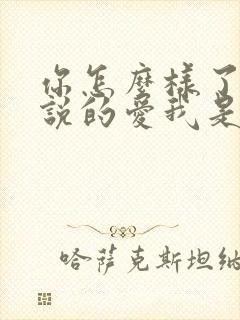 你怎麼樣了
說的愛我是
哈薩克斯坦納